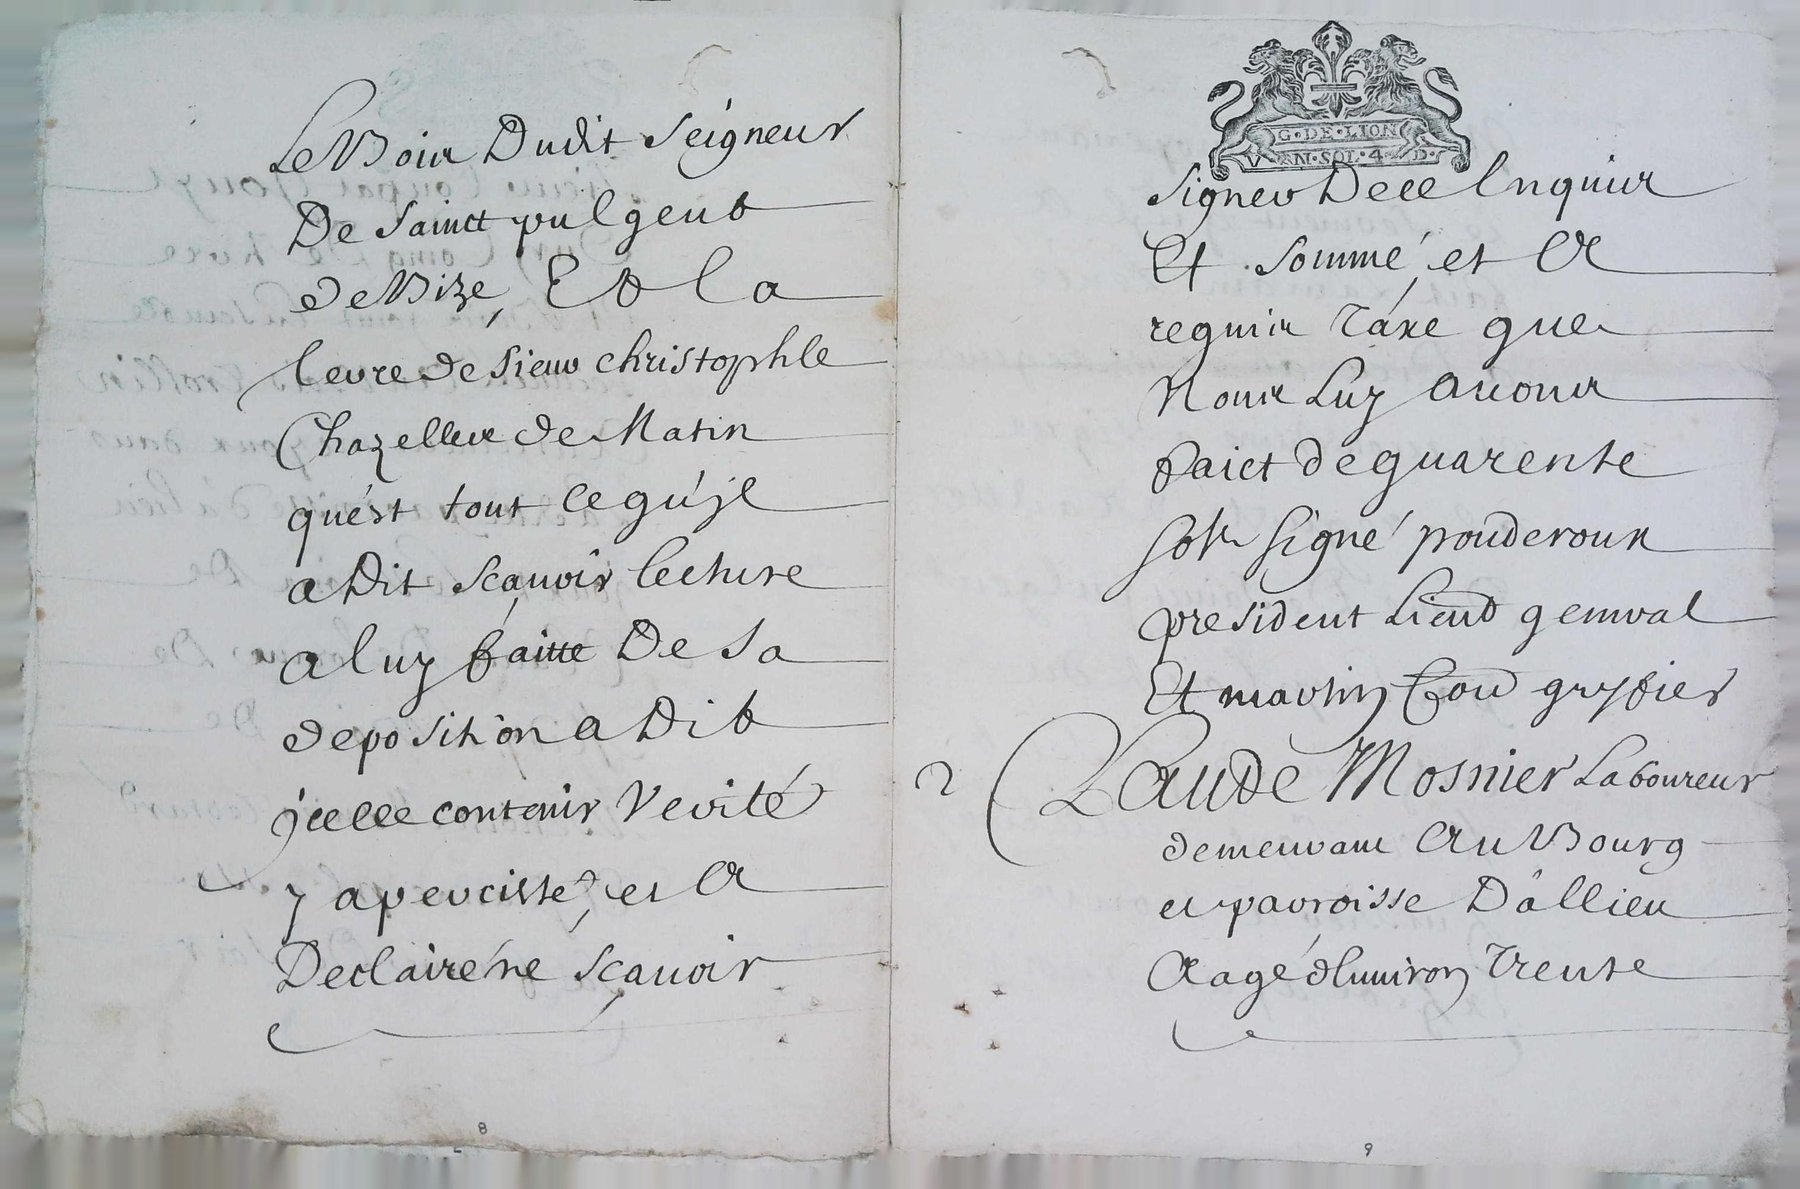 Le Bois Dudit Seigneur
De Sainct pulgent
de Bize, Et la
levre de Sieur Christophle
Chazelles de Matin
qu'est tout ce qu'jl
a Dit sçauoir lecture
a luy faitte De sa
deposition a Dit
jcelle contenir verité
y a percisté, et a
Declairé ne sçauoir
8
G·DE·LION
VN·SOL·4·D·
signer De ce Enquis
Et sommé et a
requis Taxe que
Nous Luy auons
faict de quarente
sols signé pouderoux
president Lieut general
Et martin Com greffier
2
Claude Mosnier Laboureur
demeurant Au Bourg
et parroisse D'allieu
aagé d'Enuiron Trente
9